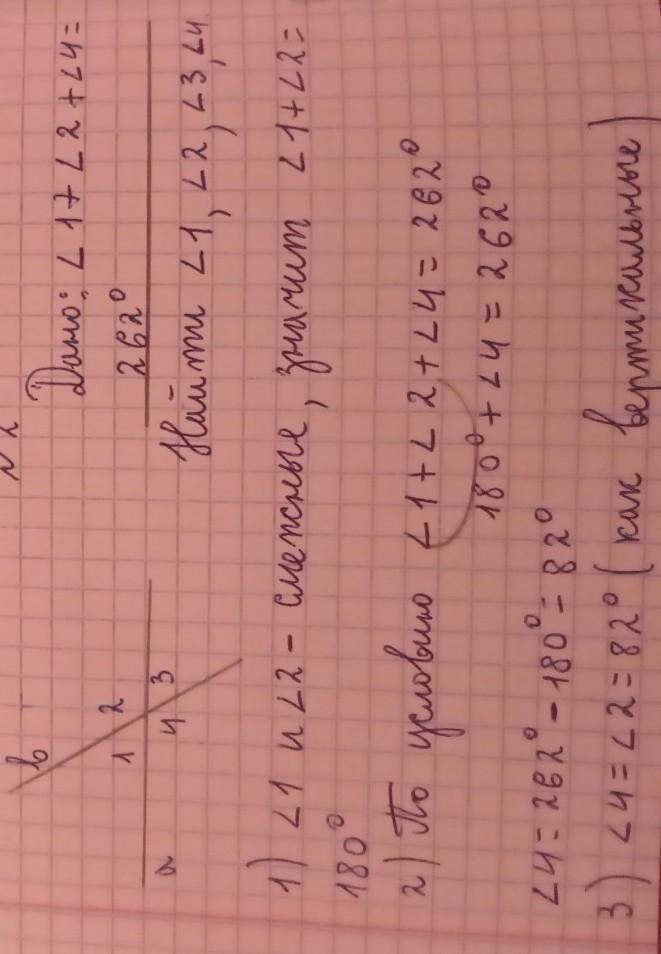 N 2
Дано: ∠1+∠2+∠4=
262°
Найти ∠1, ∠2, ∠3, ∠4
в
1 2
4 3
а
1) ∠1 и ∠2 - смежные, значит ∠1+∠2=
180°
2) По условию ∠1+∠2+∠4=262°
180°+∠4=262°
∠4=262°-180°=82°
3) ∠4=∠2=82° (как вертикальные)